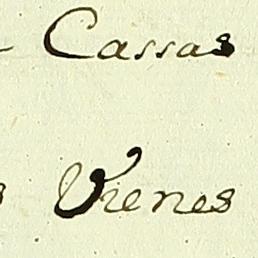 Cassas
Vienes